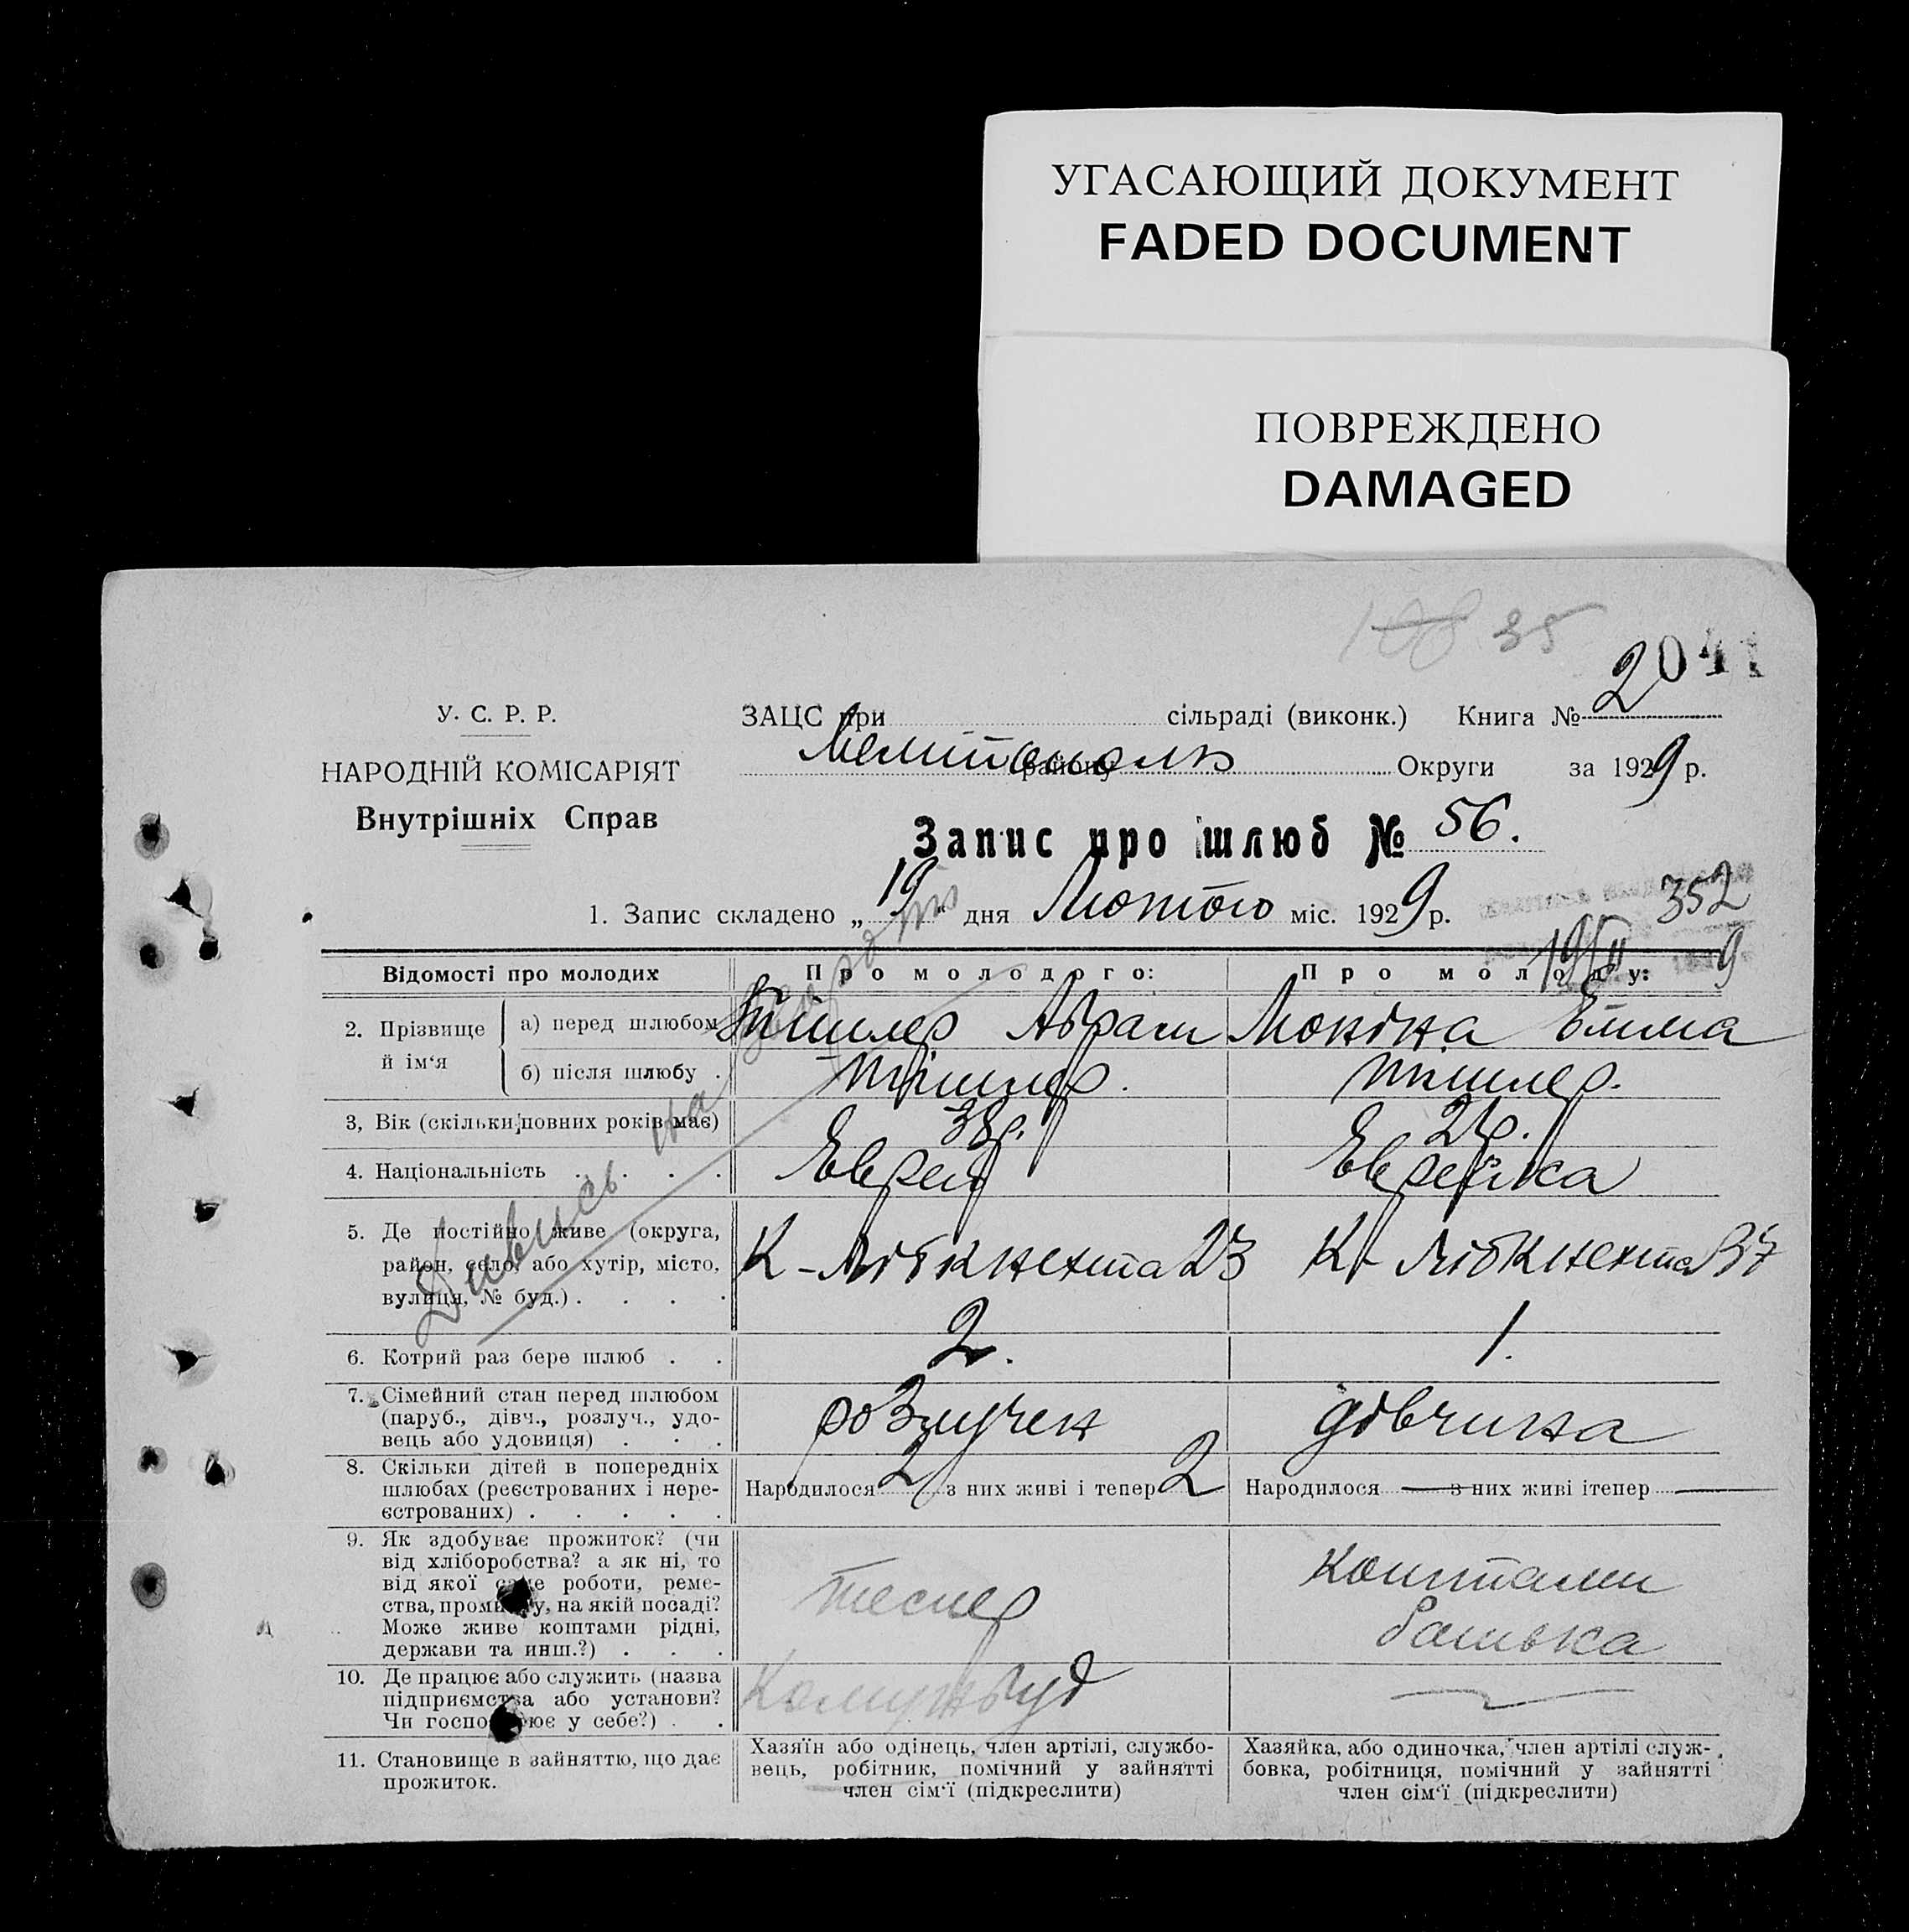 УГАСАЮЩИЙ ДОКУМЕНТ
FADED DOCUMENT
ПОВРЕЖДЕНО
DAMAGED
35
2041
У. С. Р. Р.
НАРОДНІЙ КОМІСАРІЯТ
Внутрішніх Справ
ЗАЦС при сільраді (виконк.) Книга № 2
району Округи за 1929 р.
Запис про шлюб № 56.
1. Запис складено „19“ дня Лютого міс. 1929 р.
352
Дивись на
Відомості про молодих
Про молодого:
Про молоду:
2. Прізвище й ім‘я
а) перед шлюбом
Тішлер Абрам
Моніна Емма
б) після шлюбу .
Тішлер.
Тішлер.
3, Вік (скільки повних років має)
38р.
4. Національність . . . .
Еврей
Еврейка
5. Де постійно живе (округа,
район, село, або хутір, місто,
вулиця, № буд.) . . . .
К-Лібкнехта 23
К-Лібкнехта 37
6. Котрий раз бере шлюб . .
2.
1.
7. Сімейний стан перед шлюбом
(паруб., дівч., розлуч., удо-
вець або удовиця) . . .
розлучен
дівчина
8. Скільки дітей в попередніх
шлюбах (реєстрованих і нере-
єстрованих) . . . . .
Народилося 2 з них живі і тепер 2
Народилося — з них живі ітепер —
9. Як здобуває прожиток? (чи
від хліборобства? а як ні, то
від якої саме роботи, реме-
ства, промислу, на якій посаді?
Може живе коштами рідні,
держави та инш.?) . . .
тесляр
коштами
батька
10. Де працює або служить (назва
підприємства або установи?
Чи господарює у себе?) . .
Комунбуд
—
11. Становище в зайняттю, що дає
прожиток.
Хазяїн або одінець, член артілі, службо-
вець, робітник, помічний у зайнятті
член сім‘ї (підкреслити)
Хазяйка, або одиночка, член артілі служ-
бовка, робітниця, помічний у зайнятті
член сім‘ї (підкреслити)